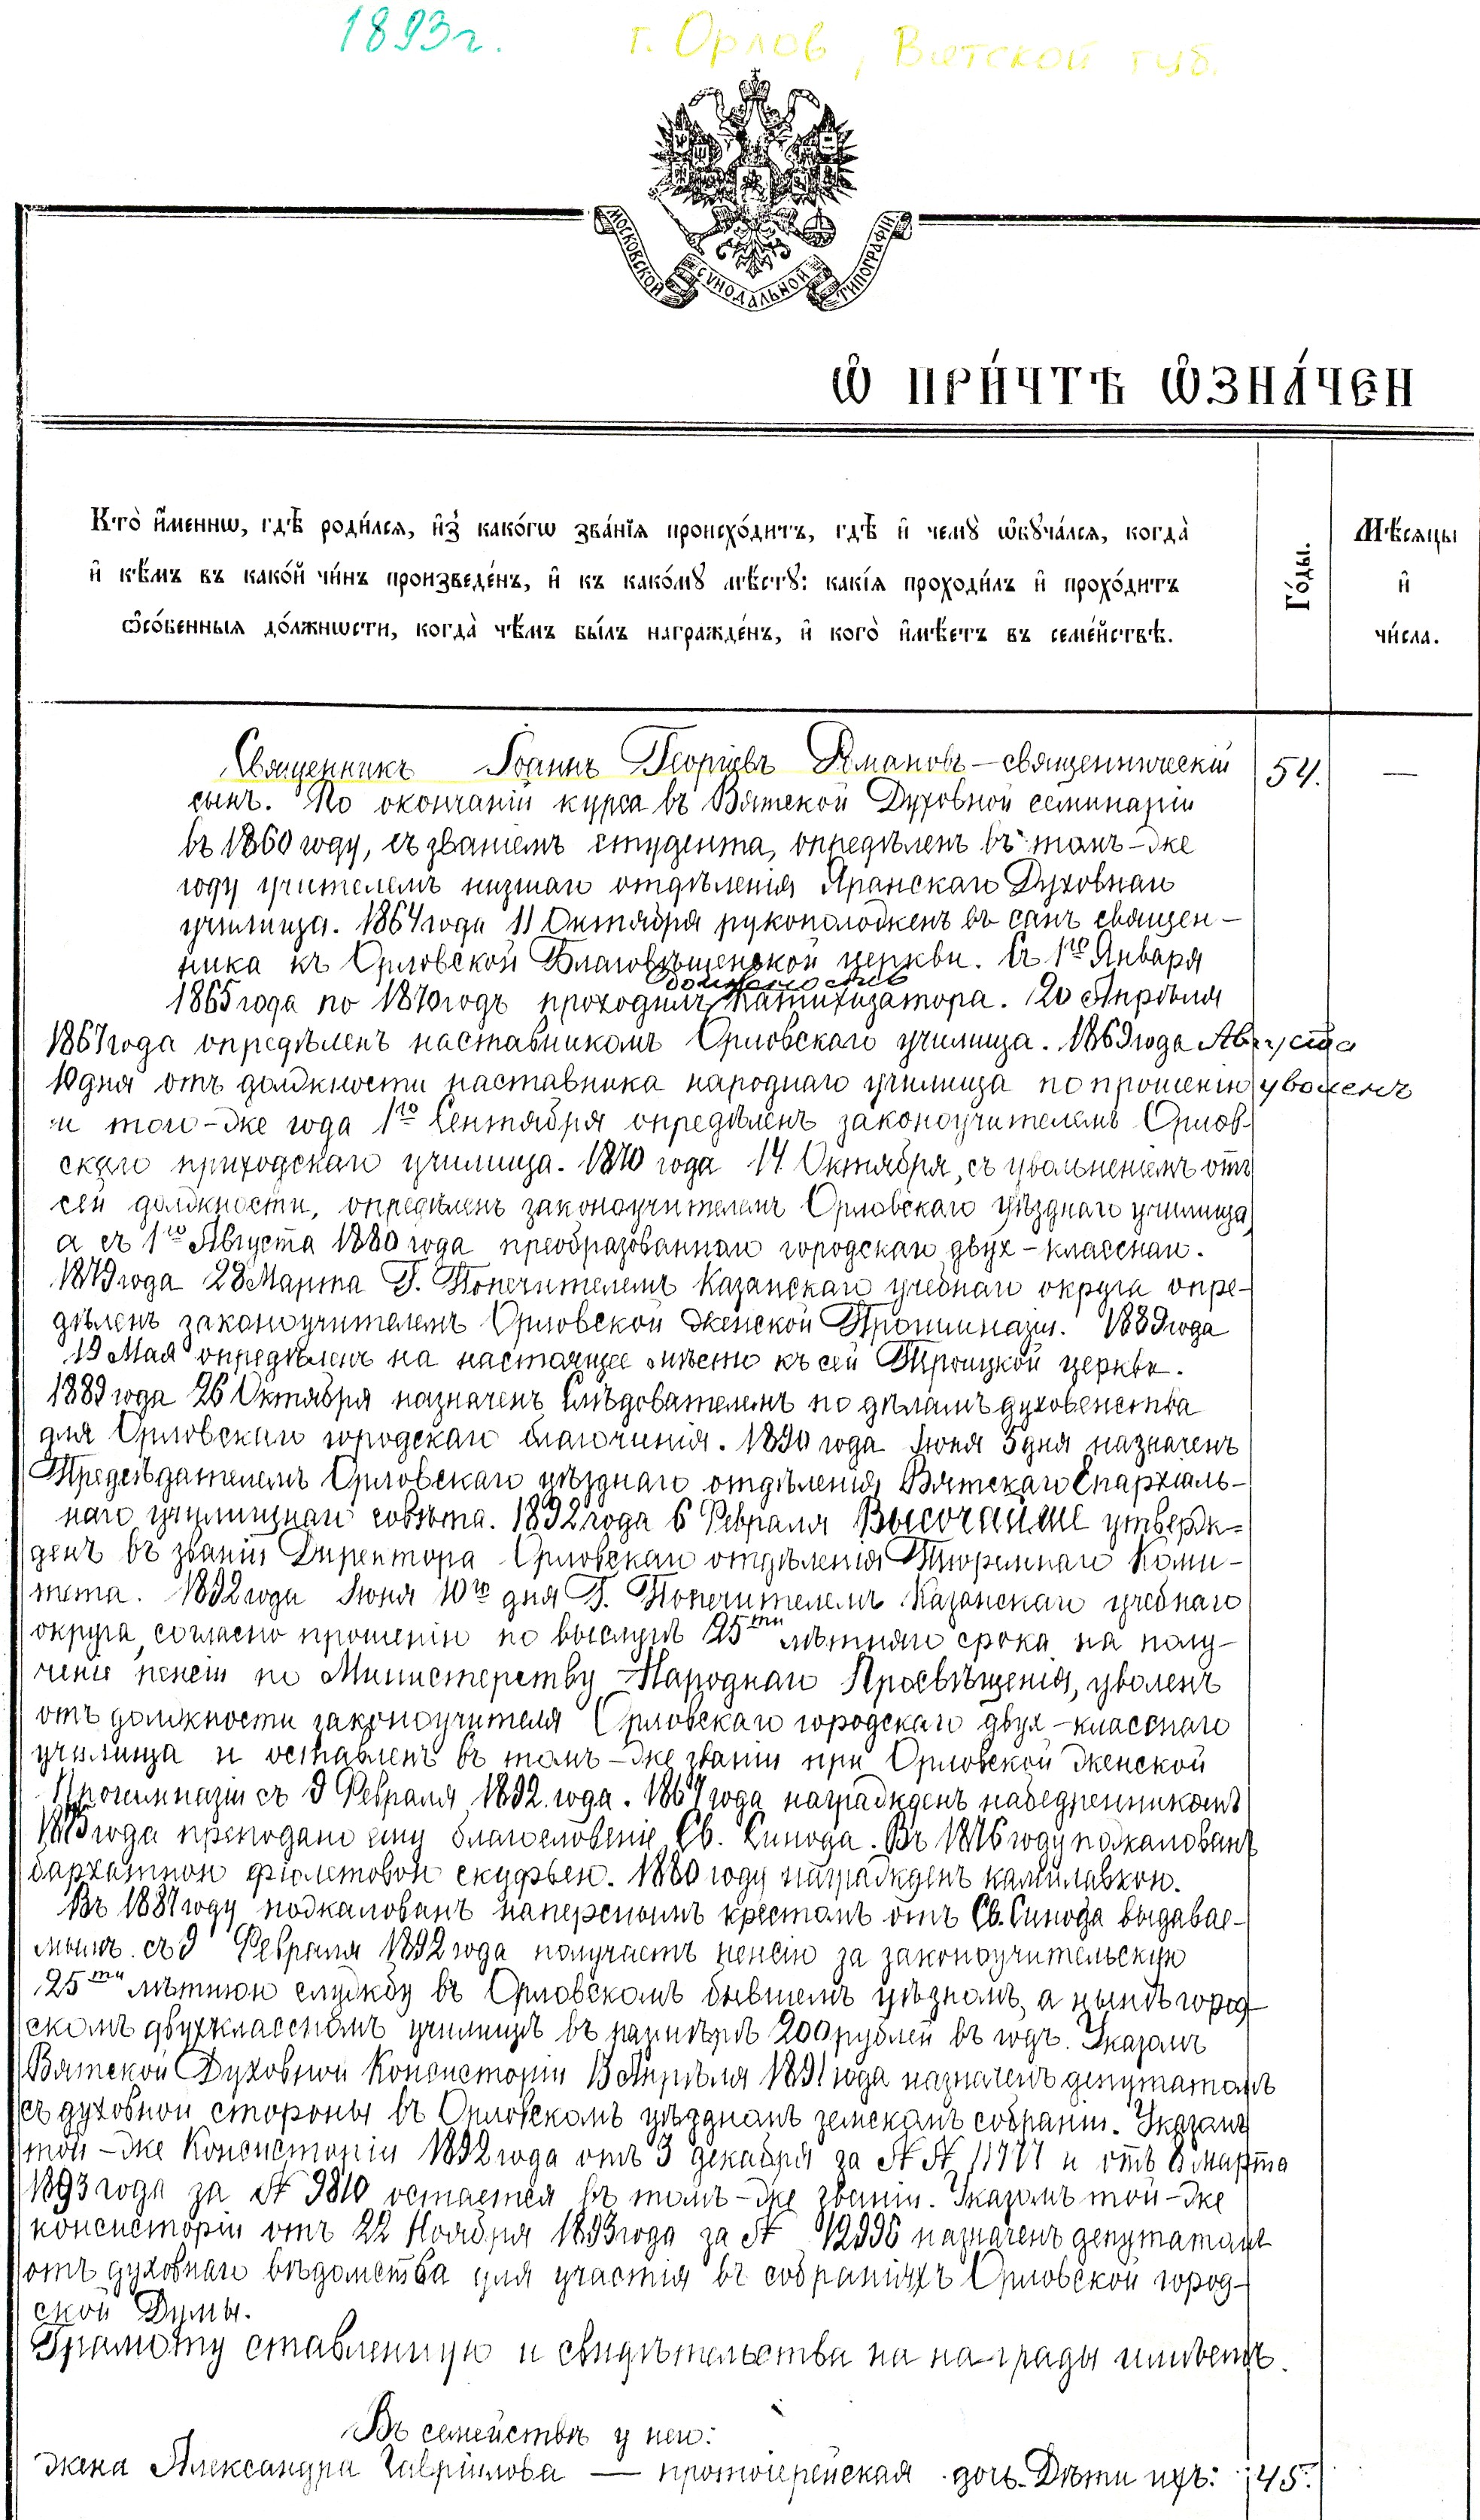 1893г. г. Орлов, Вятской губ.
МОСКОВСКОЙ СѴНОДАЛЬНОЙ ТИПОГРАФІИ
Ѡ҆ ПРИ́ЧТѢ Ѡ҆ЗНА́ЧЕН
Кто̀ и҆́меннѡ, гдѣ̀ роди́лсѧ, и҆з̾ како́гѡ зва́нїѧ происхо́дитъ, гдѣ̀ и҆ чемꙋ̀ ѡ҆бꙋча́лсѧ, когда̀
и҆ кѣ́мъ въ како́й чи́нъ произведе́нъ, и҆ къ како́мꙋ мѣ́стꙋ: какі́ѧ проходи́лъ и҆ прохо́дитъ
ѻ҆со́бенныѧ до́лжнѡсти, когда̀ чѣ́мъ бы́лъ награжде́нъ, и҆ кого̀ и҆мѣ́етъ въ семе́йствѣ.
Го́ды.
Мѣ́сѧцы
и҆
чи́сла.
Священникъ Іоаннъ Георгіевъ Романовъ – священническій 54. —
сынъ. По окончаніи курса въ Вятской Духовной семинаріи
въ 1860 году, съ званіемъ студента, опредѣленъ въ томъ-же
году учителемъ низшаго отдѣленія Яранскаго Духовнаго
училища. 1864 года 11 Октября рукоположенъ въ санъ священ-
ника къ Орловской Благовѣщенской церкви. Съ 1го Января
должность
1865 года по 1870 годъ проходилъ катихизатора. 20 Апрѣля
1867 года опредѣленъ наставникомъ Орловскаго училища. 1869 года Августа
10 дня отъ должности наставника народнаго училища по прошенію уволенъ
и того-же года 1го Сентября опредѣленъ законоучителемъ Орлов-
скаго приходскаго училища. 1870 года 14 Октября, съ увольненіемъ отъ
сей должности, опредѣленъ законоучителемъ Орловскаго уѣзднаго училища,
а съ 1го Августа 1880 года преобразованнаго городскаго двух-класснаго.
1879 года 28 Марта Г. Попечителемъ Казанскаго учебнаго округа опре-
дѣленъ законоучителемъ Орловской Женской Прогимназіи. 1889 года
19 Мая опредѣленъ на настоящее мѣсто къ сей Троицкой церкви.
1889 года 26 Октября назначенъ Слѣдователемъ по дѣламъ духовенства
для Орловскаго городскаго благочинія. 1890 года Іюня 5 дня назначенъ
Предсѣдателемъ Орловскаго уѣзднаго отдѣленія Вятскаго Епархіаль-
наго училищнаго совѣта. 1892 года 6 Февраля Высочайше утверж-
денъ въ званіи Директора Орловскаго отдѣленія Тюремнаго Коми-
тета. 1892 года Іюня 10го дня Г. Попечителемъ Казанскаго учебнаго
округа, согласно прошенію по выслугѣ 25ти лѣтняго срока на полу-
ченіе пенсіи по Министерству Народнаго Просвѣщенія, уволенъ
отъ должности законоучителя Орловскаго городскаго двух-класснаго
училища и оставленъ въ томъ-же званіи при Орловской Женской
Прогимназіи съ 9 Февраля 1892 года. 1867 года награжденъ набедренникомъ
1873 года преподано ему благословеніе Св. Синода. Въ 1876 году пожалованъ
бархатною фіолетовою скуфьею. 1880 году награжденъ камилавкою.
Въ 1887 году пожалованъ наперснымъ крестомъ отъ Св. Синода выдавае-
мымъ. съ 9 Февраля 1892 года получаетъ пенсію за законоучительскую
25ти лѣтнюю службу въ Орловскомъ бывшемъ уѣздномъ, а нынѣ город-
скомъ двухклассномъ училищѣ въ размѣрѣ 200 рублей въ годъ. Указомъ
Вятской Духовной Консисторіи 13 Апрѣля 1891 года назначенъ депутатомъ
съ духовной стороны въ Орловскомъ уѣздномъ земскомъ собраніи. Указомъ
той-же Консисторіи 1892 года отъ 3 декабря за № № 11777 и отъ 8 Марта
1893 года за № 9810 остается въ томъ-же званіи. Указомъ той-же
консисторіи отъ 22 Ноября 1893 года за № 12996 назначенъ депутатомъ
отъ духовнаго вѣдомства для участія въ собраніяхъ Орловской город-
ской Думы.
Грамоту ставленную и свидѣтельства на награды имѣетъ.
Въ семействѣ у него:
жена Александра Гавріилова — протоіерейская дочь. Дѣти ихъ: 45.